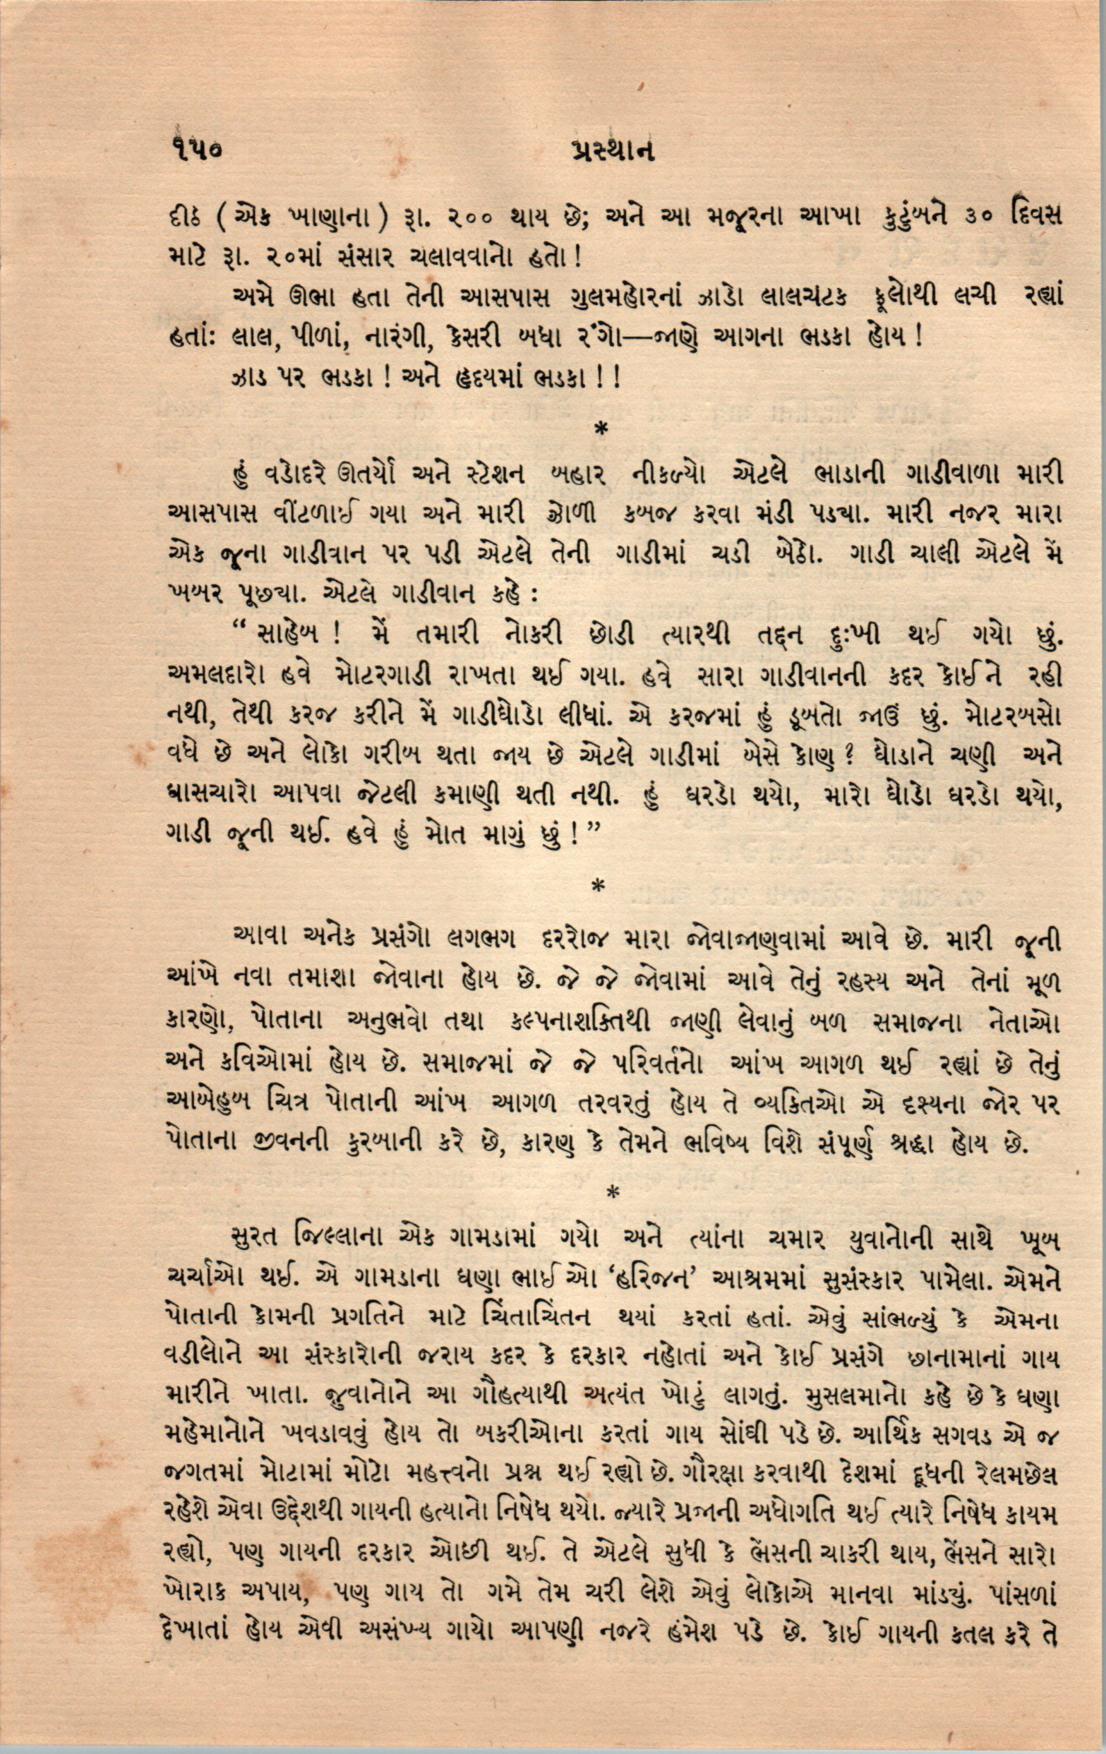 ૧૫૦
પ્રસ્થાન
દીઠ ( એક ખાણાના ) રૂા. ૨૦૦ થાય છે; અને આ મજૂરના આખા કુટુંબને ૩૦ દિવસ
માટે રૂા. ૨૦માં સંસાર ચલાવવાનો હતો !
અમે ઊભા હતા તેની આસપાસ ગુલમહોરનાં ઝાડો લાલચટક ફૂલોથી લચી રહ્યાં
હતાં: લાલ, પીળાં, નારંગી, કેસરી બધા રંગો—જાણે આગના ભડકા હોય !
ઝાડ પર ભડકા ! અને હૃદયમાં ભડકા ! !
*
હું વડોદરે ઊતર્યો અને સ્ટેશન બહાર નીકળ્યો એટલે ભાડાની ગાડીવાળા મારી
આસપાસ વીંટળાઈ ગયા અને મારી ઝોળી કબજ કરવા મંડી પડ્યા. મારી નજર મારા
એક જૂના ગાડીવાન પર પડી એટલે તેની ગાડીમાં ચડી બેઠો. ગાડી ચાલી એટલે મેં
ખબર પૂછ્યા. એટલે ગાડીવાન કહે :
“ સાહેબ ! મેં તમારી નોકરી છોડી ત્યારથી તદ્દન દુઃખી થઈ ગયો છું.
અમલદારો હવે મોટરગાડી રાખતા થઈ ગયા. હવે સારા ગાડીવાનની કદર કોઈને રહી
નથી, તેથી કરજ કરીને મેં ગાડીઘોડો લીધાં. એ કરજમાં હું ડૂબતો જાઉં છું. મોટરબસો
વધે છે અને લોકો ગરીબ થતા જાય છે એટલે ગાડીમાં બેસે કોણ ? ઘોડાને ચણી અને
ઘાસચારો આપવા જેટલી કમાણી થતી નથી. હું ઘરડો થયો, મારો ઘોડો ઘરડો થયો,
ગાડી જૂની થઈ. હવે હું મોત માગું છું ! ”
*
આવા અનેક પ્રસંગો લગભગ દરરોજ મારા જોવાજાણવામાં આવે છે. મારી જૂની
આંખે નવા તમાશા જોવાના હોય છે. જે જે જોવામાં આવે તેનું રહસ્ય અને તેનાં મૂળ
કારણો, પોતાના અનુભવો તથા કલ્પનાશક્તિથી જાણી લેવાનું બળ સમાજના નેતાઓ
અને કવિઓમાં હોય છે. સમાજમાં જે જે પરિવર્તનો આંખ આગળ થઈ રહ્યાં છે તેનું
આબેહુબ ચિત્ર પોતાની આંખ આગળ તરવરતું હોય તે વ્યકિતઓ એ દૃશ્યના જોર પર
પોતાના જીવનની કુરબાની કરે છે, કારણ કે તેમને ભવિષ્ય વિશે સંપૂર્ણ શ્રદ્ધા હોય છે.
*
સુરત જિલ્લાના એક ગામડામાં ગયો અને ત્યાંના ચમાર યુવાનોની સાથે ખૂબ
ચર્ચાઓ થઈ. એ ગામડાના ઘણા ભાઈઓ ‘હરિજન’ આશ્રમમાં સુસંસ્કાર પામેલા. એમને
પોતાની કોમની પ્રગતિને માટે ચિંતાચિંતન થયાં કરતાં હતાં. એવું સાંભળ્યું કે એમના
વડીલોને આ સંસ્કારોની જરાય કદર કે દરકાર નહોતાં અને કોઈ પ્રસંગે છાનામાનાં ગાય
મારીને ખાતા. જુવાનોને આ ગૌહત્યાથી અત્યંત ખોટું લાગતું. મુસલમાનો કહે છે કે ઘણા
મહેમાનોને ખવડાવવું હોય તો બકરીઓના કરતાં ગાય સોંઘી પડે છે. આર્થિક સગવડ એ જ
જગતમાં મોટામાં મોટો મહત્ત્વનો પ્રશ્ન થઈ રહ્યો છે. ગૌરક્ષા કરવાથી દેશમાં દૂધની રેલમછેલ
રહેશે એવા ઉદ્દેશથી ગાયની હત્યાનો નિષેધ થયો. જ્યારે પ્રજાની અધોગતિ થઈ ત્યારે નિષેધ કાયમ
રહ્યો, પણ ગાયની દરકાર ઓછી થઈ. તે એટલે સુધી કે ભેંસની ચાકરી થાય, ભેંસને સારો
ખોરાક અપાય, પણ ગાય તો ગમે તેમ ચરી લેશે એવું લોકોએ માનવા માંડ્યું. પાંસળાં
દેખાતાં હોય એવી અસંખ્ય ગાયો આપણી નજરે હંમેશ પડે છે. કોઈ ગાયની કતલ કરે તે